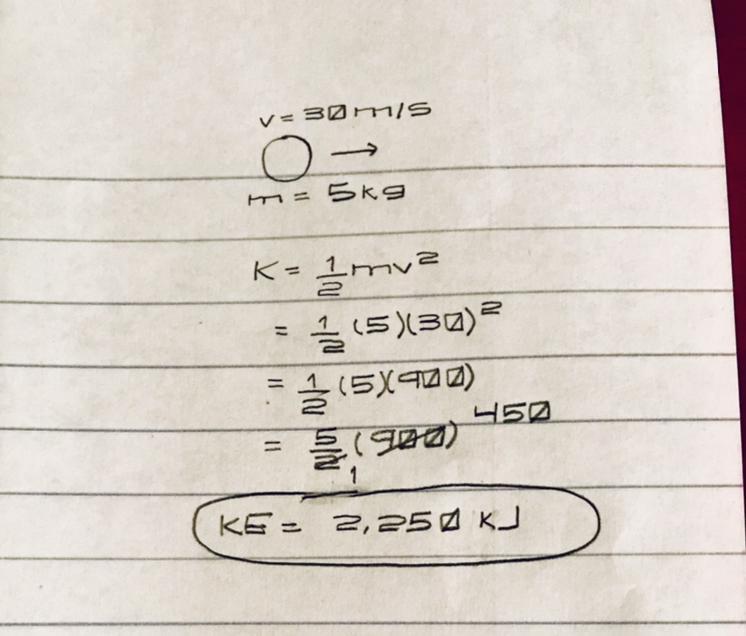 v = 30 m/s
m = 5 kg
K = 1/2 mv²
= 1/2 (5)(30)²
= 1/2 (5)(900)
= 5/2 (900) 450
1
KE = 2,250 KJ